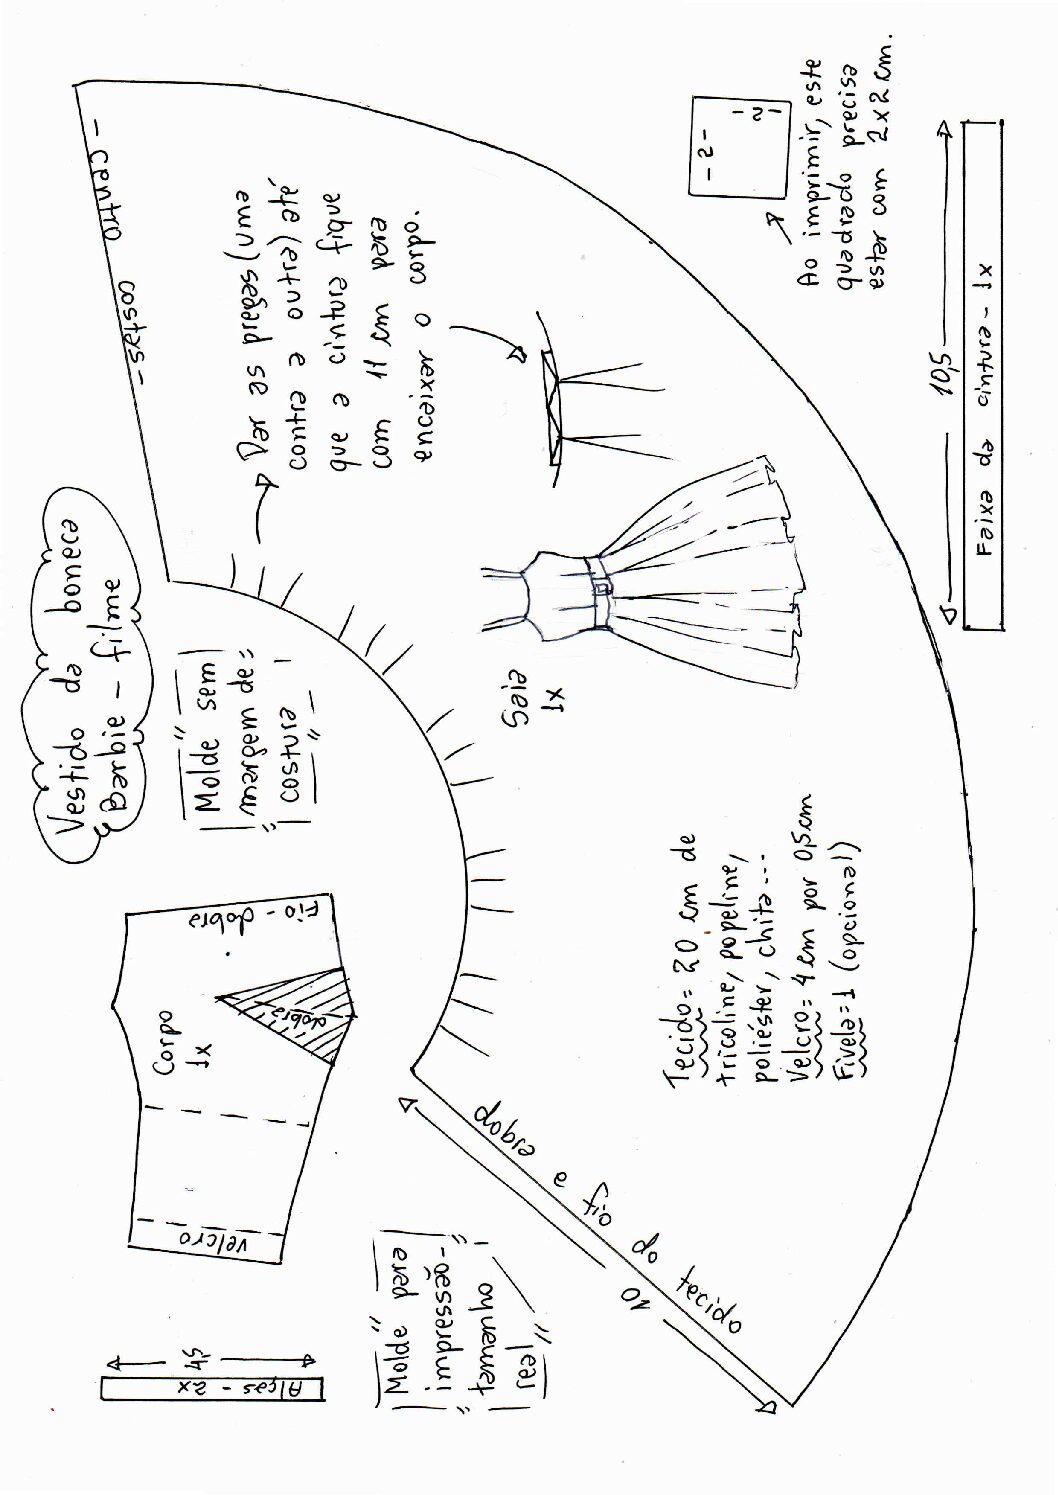 Vestido da boneca
Barbie - filme
Molde sem
margem de
costura
- centro costas -
Dar as pregas (uma
contra a outra) até
que a cintura fique
com 11 cm para
encaixar o corpo.
Saia
1x
-2-
-2-
Ao imprimir, este
quadrado precisa
estar com 2x2 cm.
10,5
Faixa da cintura - 1x
Fio - dobra
dobra
Corpo
1x
velcro
4,5
Alças - 2x
Molde para
impressão-
tamanho
real
dobra e fio do tecido
10
Tecido = 20 cm de
tricoline, popeline,
poliéster, chita...
Velcro = 4 cm por 0,5cm
Fivela = 1 (opcional)